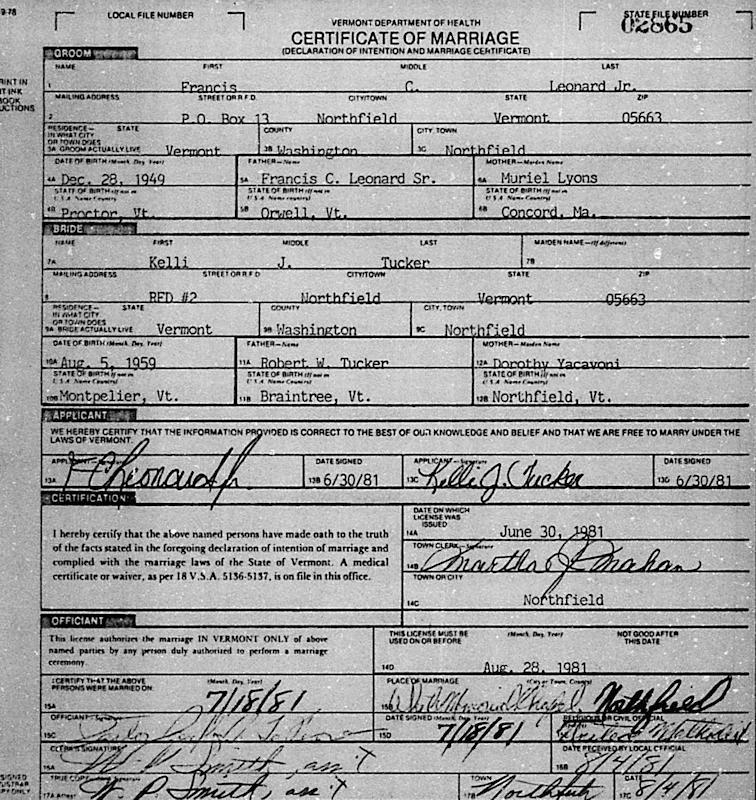 9-78
LOCAL FILE NUMBER
VERMONT DEPARTMENT OF HEALTH
STATE FILE NUMBER
02865
CERTIFICATE OF MARRIAGE
(DECLARATION OF INTENTION AND MARRIAGE CERTIFICATE)
GROOM
NAME FIRST MIDDLE LAST
1 Francis C. Leonard Jr.
MAILING ADDRESS STREET OR R.F.D. CITY/TOWN STATE ZIP
2 P.O. Box 13 Northfield Vermont 05663
RESIDENCE— STATE COUNTY CITY, TOWN
IN WHAT CITY
OR TOWN DOES
3A GROOM ACTUALLY LIVE Vermont 3B Washington 3C Northfield
DATE OF BIRTH (Month, Day, Year) FATHER—Name MOTHER—Maiden Name
4A Dec. 28, 1949 5A Francis C. Leonard Sr. 6A Muriel Lyons
STATE OF BIRTH (If not in STATE OF BIRTH (If not in STATE OF BIRTH (If not in
U.S.A. Name Country) U.S.A. Name Country) U.S.A. Name Country)
4B Proctor, Vt. 5B Orwell, Vt. 6B Concord, Ma.
BRIDE
NAME FIRST MIDDLE LAST MAIDEN NAME—(If different)
7A Kelli J. Tucker 7B
MAILING ADDRESS STREET OR R.F.D. CITY/TOWN STATE ZIP
8 RFD #2 Northfield Vermont 05663
RESIDENCE— STATE COUNTY CITY, TOWN
IN WHAT CITY
OR TOWN DOES
9A BRIDE ACTUALLY LIVE Vermont 9B Washington 9C Northfield
DATE OF BIRTH (Month, Day, Year) FATHER—Name MOTHER—Maiden Name
10A Aug. 5, 1959 11A Robert W. Tucker 12A Dorothy Yacavoni
STATE OF BIRTH (If not in STATE OF BIRTH (If not in STATE OF BIRTH (If not in
U.S.A. Name Country) U.S.A. Name Country) U.S.A. Name Country)
10B Montpelier, Vt. 11B Braintree, Vt. 12B Northfield, Vt.
APPLICANT
WE HEREBY CERTIFY THAT THE INFORMATION PROVIDED IS CORRECT TO THE BEST OF OUR KNOWLEDGE AND BELIEF AND THAT WE ARE FREE TO MARRY UNDER THE
LAWS OF VERMONT.
APPLICANT—Signature DATE SIGNED APPLICANT—Signature DATE SIGNED
13A F C Leonard Jr 13B 6/30/81 13C Kelli J. Tucker 13D 6/30/81
CERTIFICATION
I hereby certify that the above named persons have made oath to the truth
of the facts stated in the foregoing declaration of intention of marriage and
complied with the marriage laws of the State of Vermont. A medical
certificate or waiver, as per 18 V.S.A. 5136-5137, is on file in this office.
DATE ON WHICH
LICENSE WAS
ISSUED
14A June 30, 1981
TOWN CLERK—Signature
14B Martha J. Mahan
TOWN OR CITY
14C Northfield
OFFICIANT
This license authorizes the marriage IN VERMONT ONLY of above
named parties by any person duly authorized to perform a marriage
ceremony.
THIS LICENSE MUST BE (Month, Day, Year) NOT GOOD AFTER
USED ON OR BEFORE THIS DATE
14D Aug. 28, 1981
I CERTIFY THAT THE ABOVE (Month, Day, Year) PLACE OF MARRIAGE (City or Town, County)
PERSONS WERE MARRIED ON:
15A 7/18/81 15B Memorial Chapel, Northfield
OFFICIANT DATE SIGNED (Month, Day, Year) RELIGIOUS OR CIVIL OFFICIAL
15C 15D 7/18/81 United Methodist
CLERK'S SIGNATURE DATE RECEIVED BY LOCAL OFFICIAL
16A W. P. Smith, ass't 16B 8/4/81
TRUE COPY TOWN DATE
17A Attest W. P. Smith, ass't 17B Northfield 17C 8/4/81